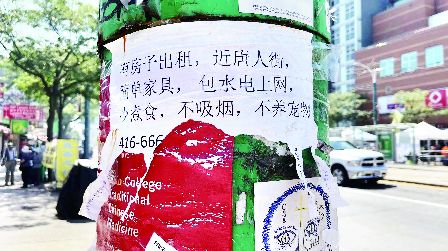 有房子出租，近唐人街，
简单家具，包水电上网，
少煮食，不吸烟，不养宠物
416-666
College
Traditional
Chinese
Medicine